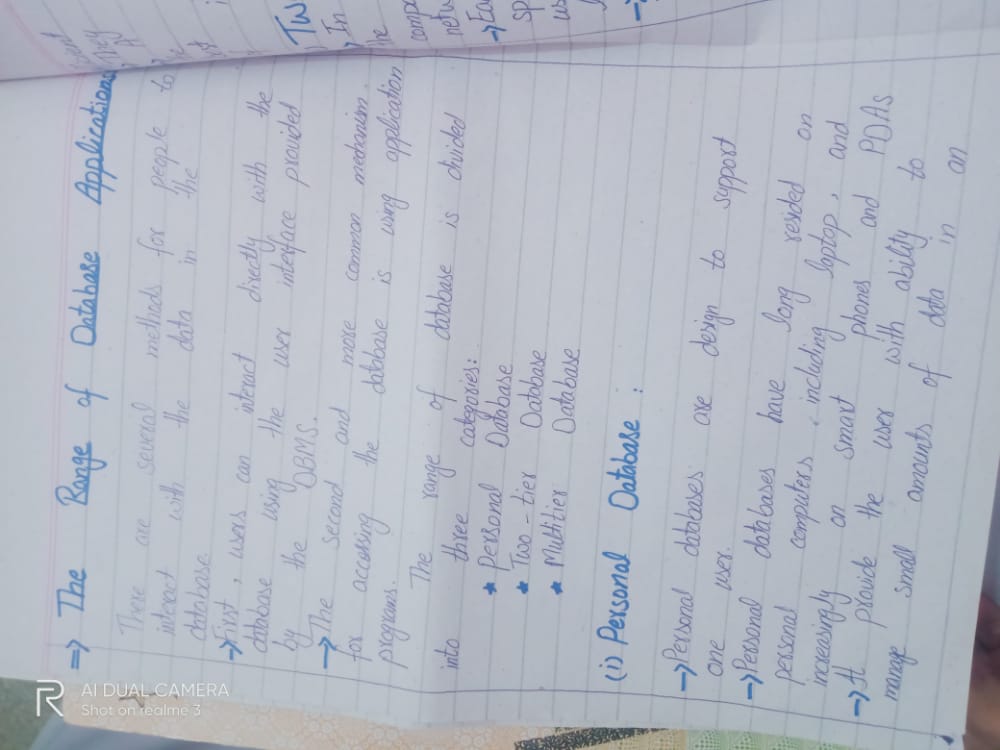 => The Range of Database Applications
There are several methods for people to
interact with the data in the
database.
→ First, users can interact directly with the
database by using the user interface provided
by the DBMS.
→ The second and more common mechanism
for accessing the database is using application
programs.
The range of database is divided
into three categories:
* Personal Database
* Two-tier Database
* Multitier Database
(i) Personal Database :
→ Personal databases are design to support
one user.
→ Personal databases have long resided on
personal computers, including laptop, and
increasingly on smart phones and PDAs
→ It provide the user with ability to
manage small amounts of data in an
Tw
→ In
the
comp
netw
→ Ea
sp
us
AI DUAL CAMERA
Shot on realme 3